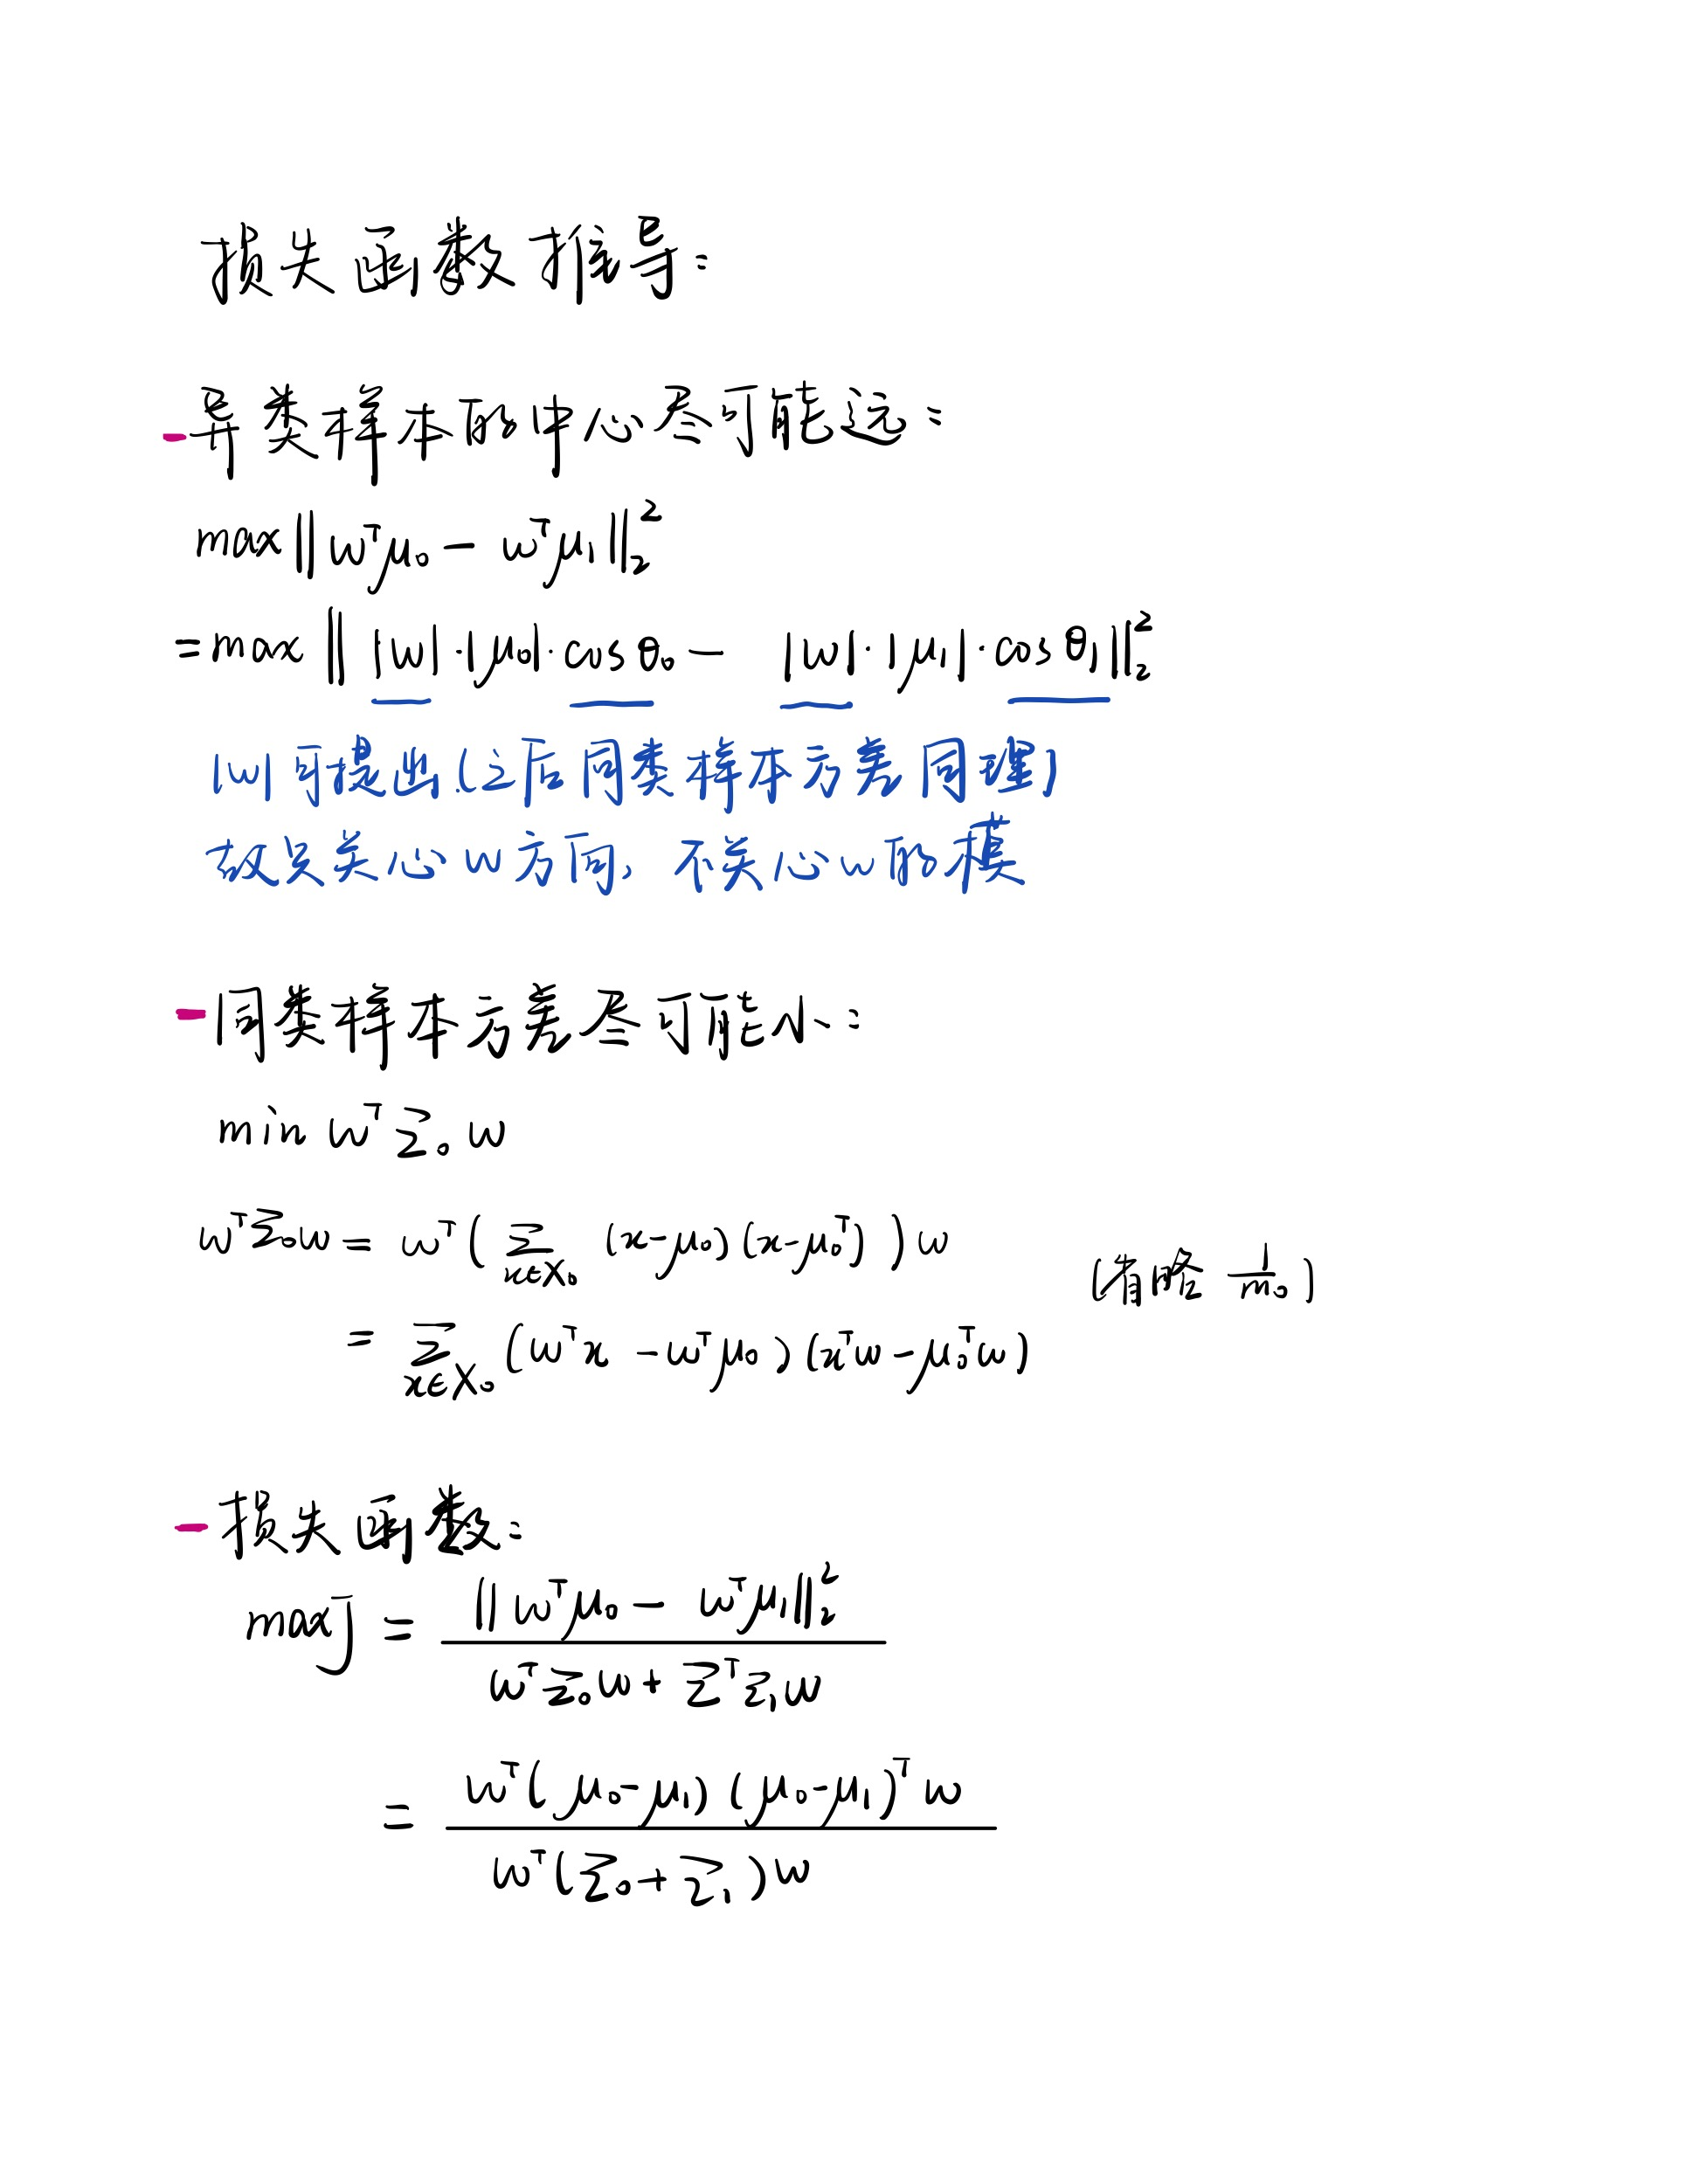 损失函数推导:
-异类样本的中心尽可能远:
max‖wᵀμ₀ - wᵀμ₁‖₂²
= max ‖ |w|·|μ₀|·cosθ₀ - |w|·|μ₁|·cosθ₁‖₂²
|w|可提出(之后同类样本方差同理)
故只关心w方向, 不关心w的模
-同类样本方差尽可能小:
min wᵀΣ₀w
wᵀΣ₀w = wᵀ( Σ_{x∈X₀} (x-μ₀)(x-μ₀ᵀ) ) w (省略 1/m₀)
= Σ_{x∈X₀} (wᵀx - wᵀμ₀)(xᵀw - μ₀ᵀw)
-损失函数:
max J = ‖wᵀμ₀ - wᵀμ₁‖₂² / wᵀΣ₀w + ΣᵀΣ₁w
= wᵀ(μ₀-μ₁)(μ₀-μ₁)ᵀw / wᵀ(Σ₀+Σ₁)w